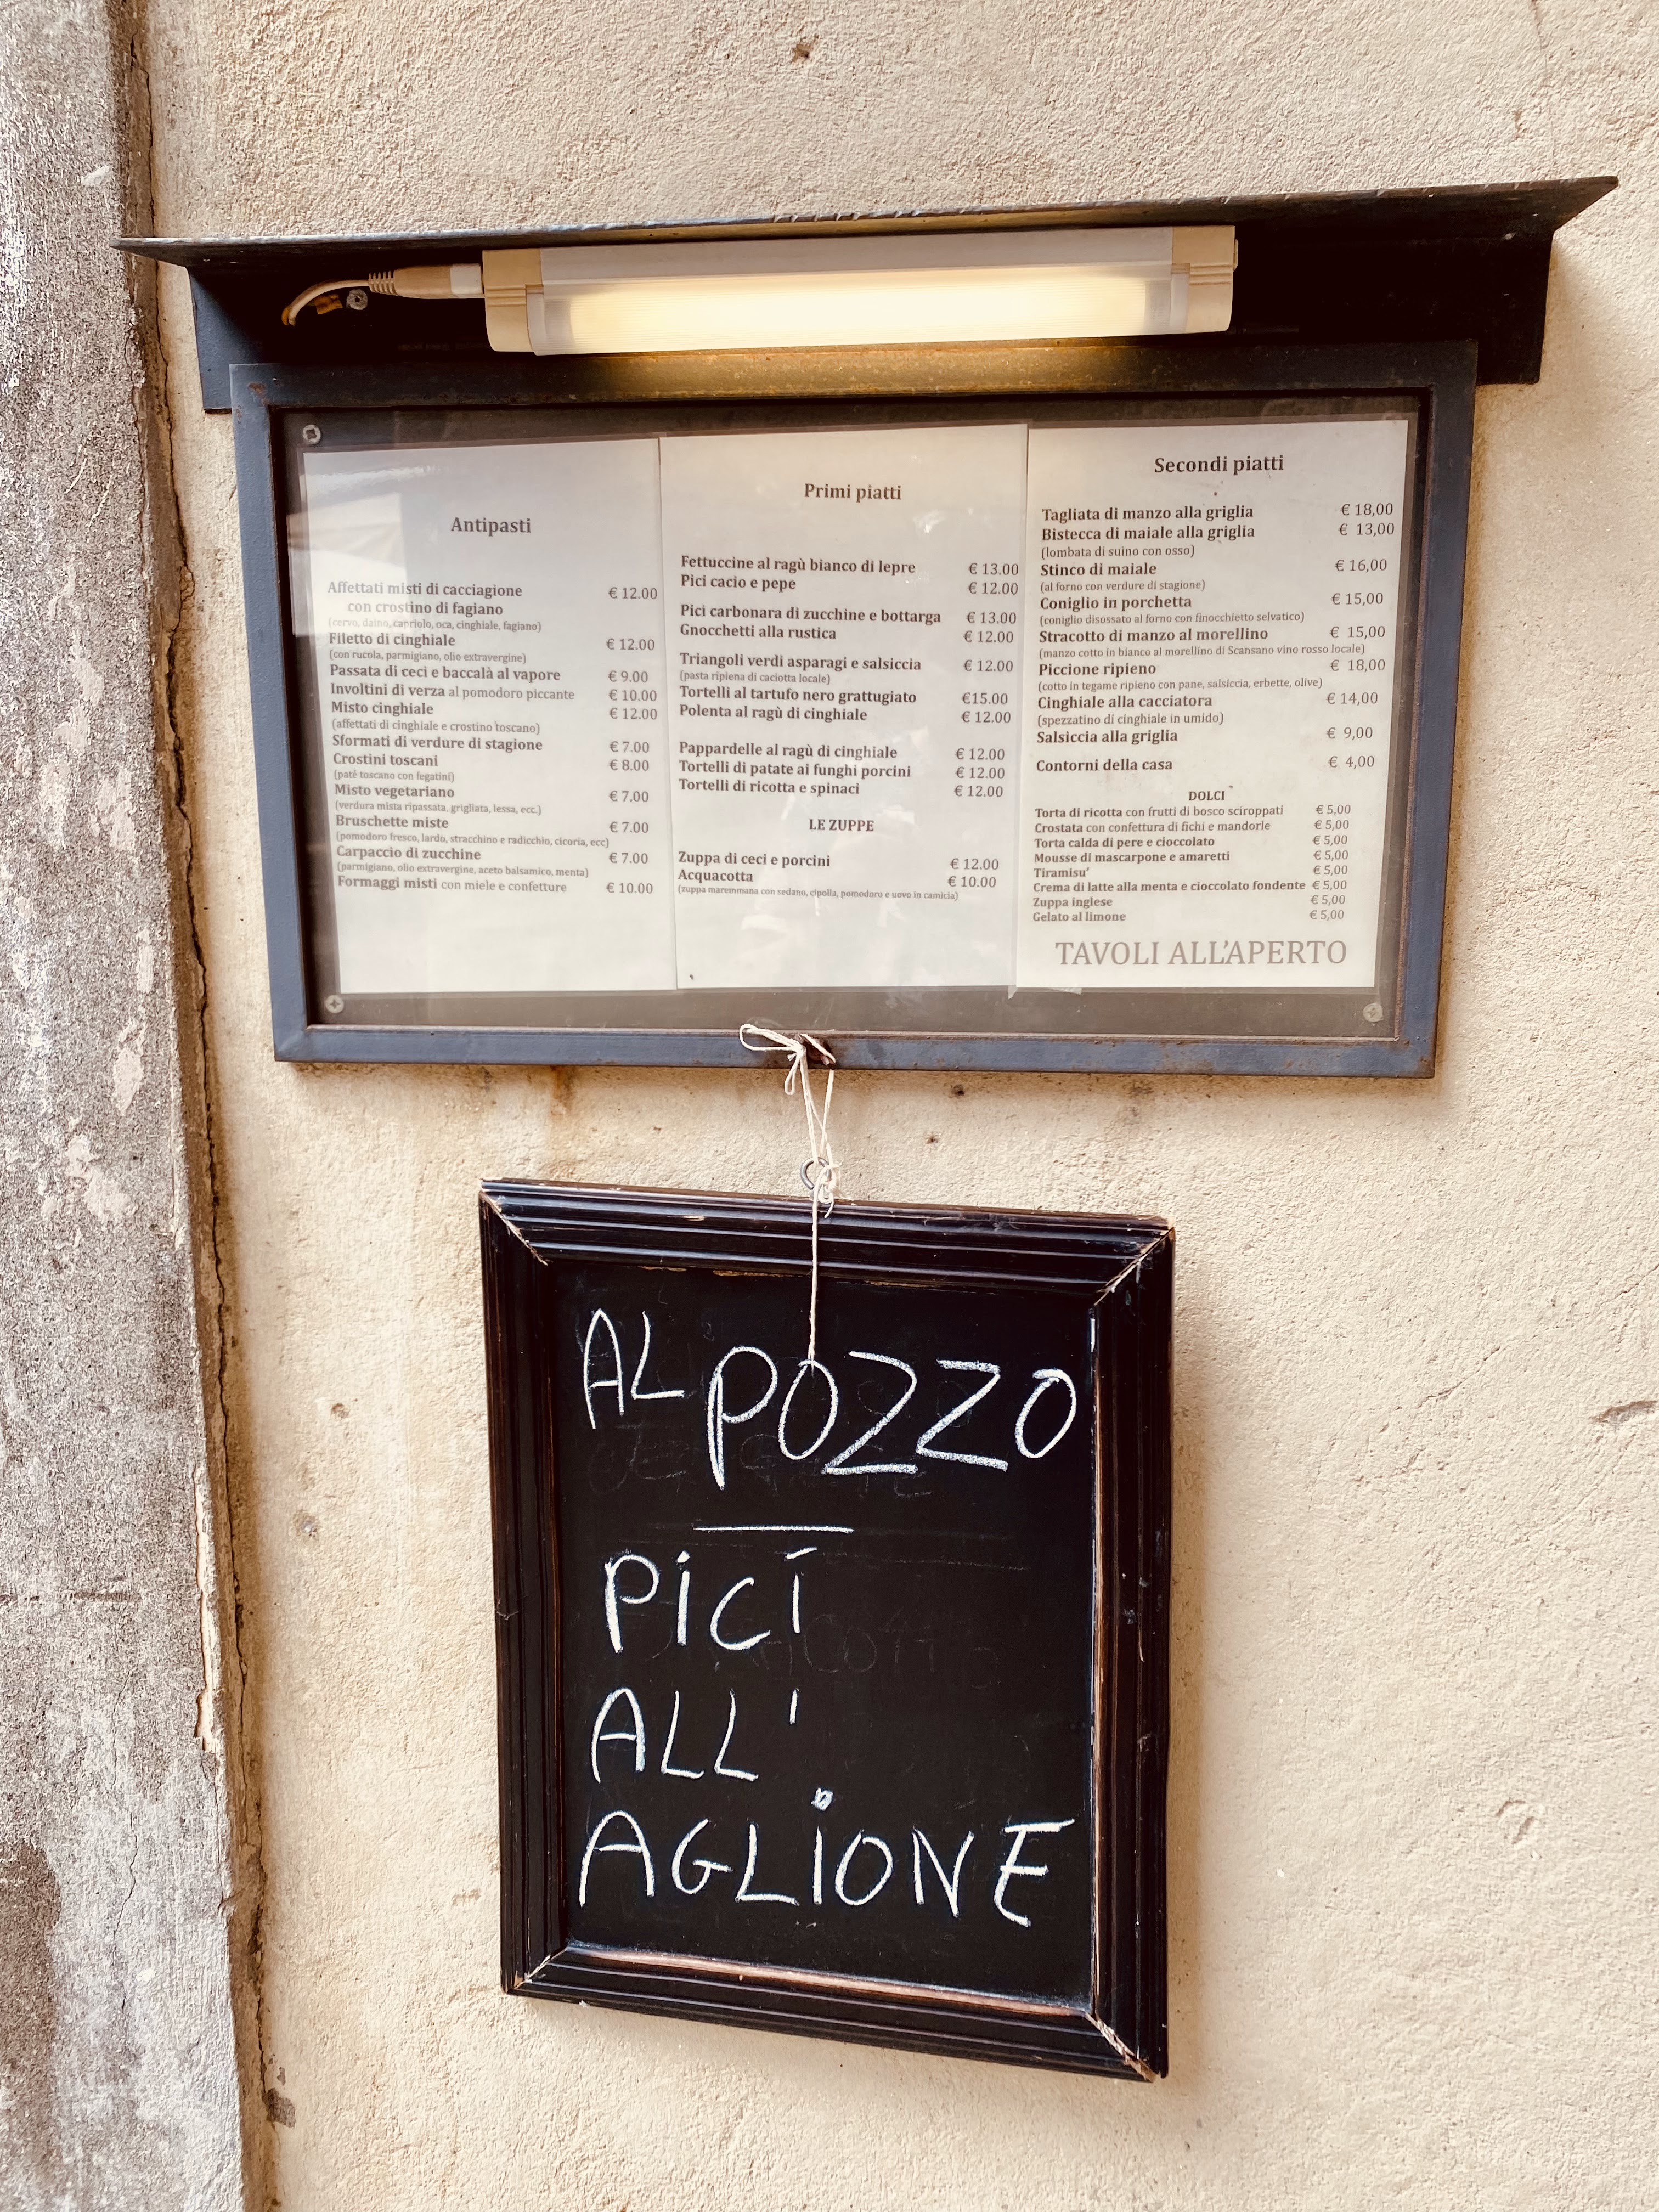 Antipasti
Affettati misti di cacciagione € 12.00
con crostino di fagiano
(cervo, daino, capriolo, oca, cinghiale, fagiano)
Filetto di cinghiale € 12.00
(con rucola, parmigiano, olio extravergine)
Passata di ceci e baccalà al vapore € 9.00
Involtini di verza al pomodoro piccante € 10.00
Misto cinghiale € 12.00
(affettati di cinghiale e crostino toscano)
Sformati di verdure di stagione € 7.00
Crostini toscani € 8.00
(paté toscano con fegatini)
Misto vegetariano € 7.00
(verdura mista ripassata, grigliata, lessa, ecc.)
Bruschette miste € 7.00
(pomodoro fresco, lardo, stracchino e radicchio, cicoria, ecc)
Carpaccio di zucchine € 7.00
(parmigiano, olio extravergine, aceto balsamico, menta)
Formaggi misti con miele e confetture € 10.00
Primi piatti
Fettuccine al ragù bianco di lepre € 13.00
Pici cacio e pepe € 12.00
Pici carbonara di zucchine e bottarga € 13.00
Gnocchetti alla rustica € 12.00
Triangoli verdi asparagi e salsiccia € 12.00
(pasta ripiena di caciotta locale)
Tortelli al tartufo nero grattugiato €15.00
Polenta al ragù di cinghiale € 12.00
Pappardelle al ragù di cinghiale € 12.00
Tortelli di patate ai funghi porcini € 12.00
Tortelli di ricotta e spinaci € 12.00
LE ZUPPE
Zuppa di ceci e porcini € 12.00
Acquacotta € 10.00
(zuppa maremmana con sedano, cipolla, pomodoro e uovo in camicia)
Secondi piatti
Tagliata di manzo alla griglia € 18,00
Bistecca di maiale alla griglia € 13,00
(lombata di suino con osso)
Stinco di maiale € 16,00
(al forno con verdure di stagione)
Coniglio in porchetta € 15,00
(coniglio disossato al forno con finocchietto selvatico)
Stracotto di manzo al morellino € 15,00
(manzo cotto in bianco al morellino di Scansano vino rosso locale)
Piccione ripieno € 18,00
(cotto in tegame ripieno con pane, salsiccia, erbette, olive)
Cinghiale alla cacciatora € 14,00
(spezzatino di cinghiale in umido)
Salsiccia alla griglia € 9,00
Contorni della casa € 4,00
DOLCI
Torta di ricotta con frutti di bosco sciroppati € 5,00
Crostata con confettura di fichi e mandorle € 5,00
Torta calda di pere e cioccolato € 5,00
Mousse di mascarpone e amaretti € 5,00
Tiramisu' € 5,00
Crema di latte alla menta e cioccolato fondente € 5,00
Zuppa inglese € 5,00
Gelato al limone € 5,00
TAVOLI ALL'APERTO
AL POZZO
PICI
ALL'
AGLIONE